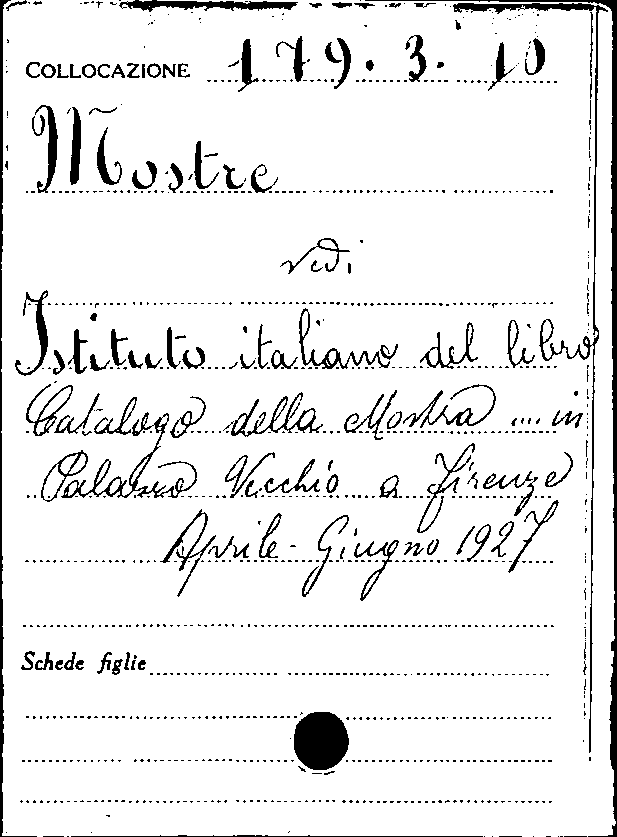 COLLOCAZIONE 179. 3. 10
Mostre
vedi
Istituto italiano del libro
Catalogo della Mostra .... in
Palazzo Vecchio a Firenze
Aprile - Giugno 1927
Schede figlie